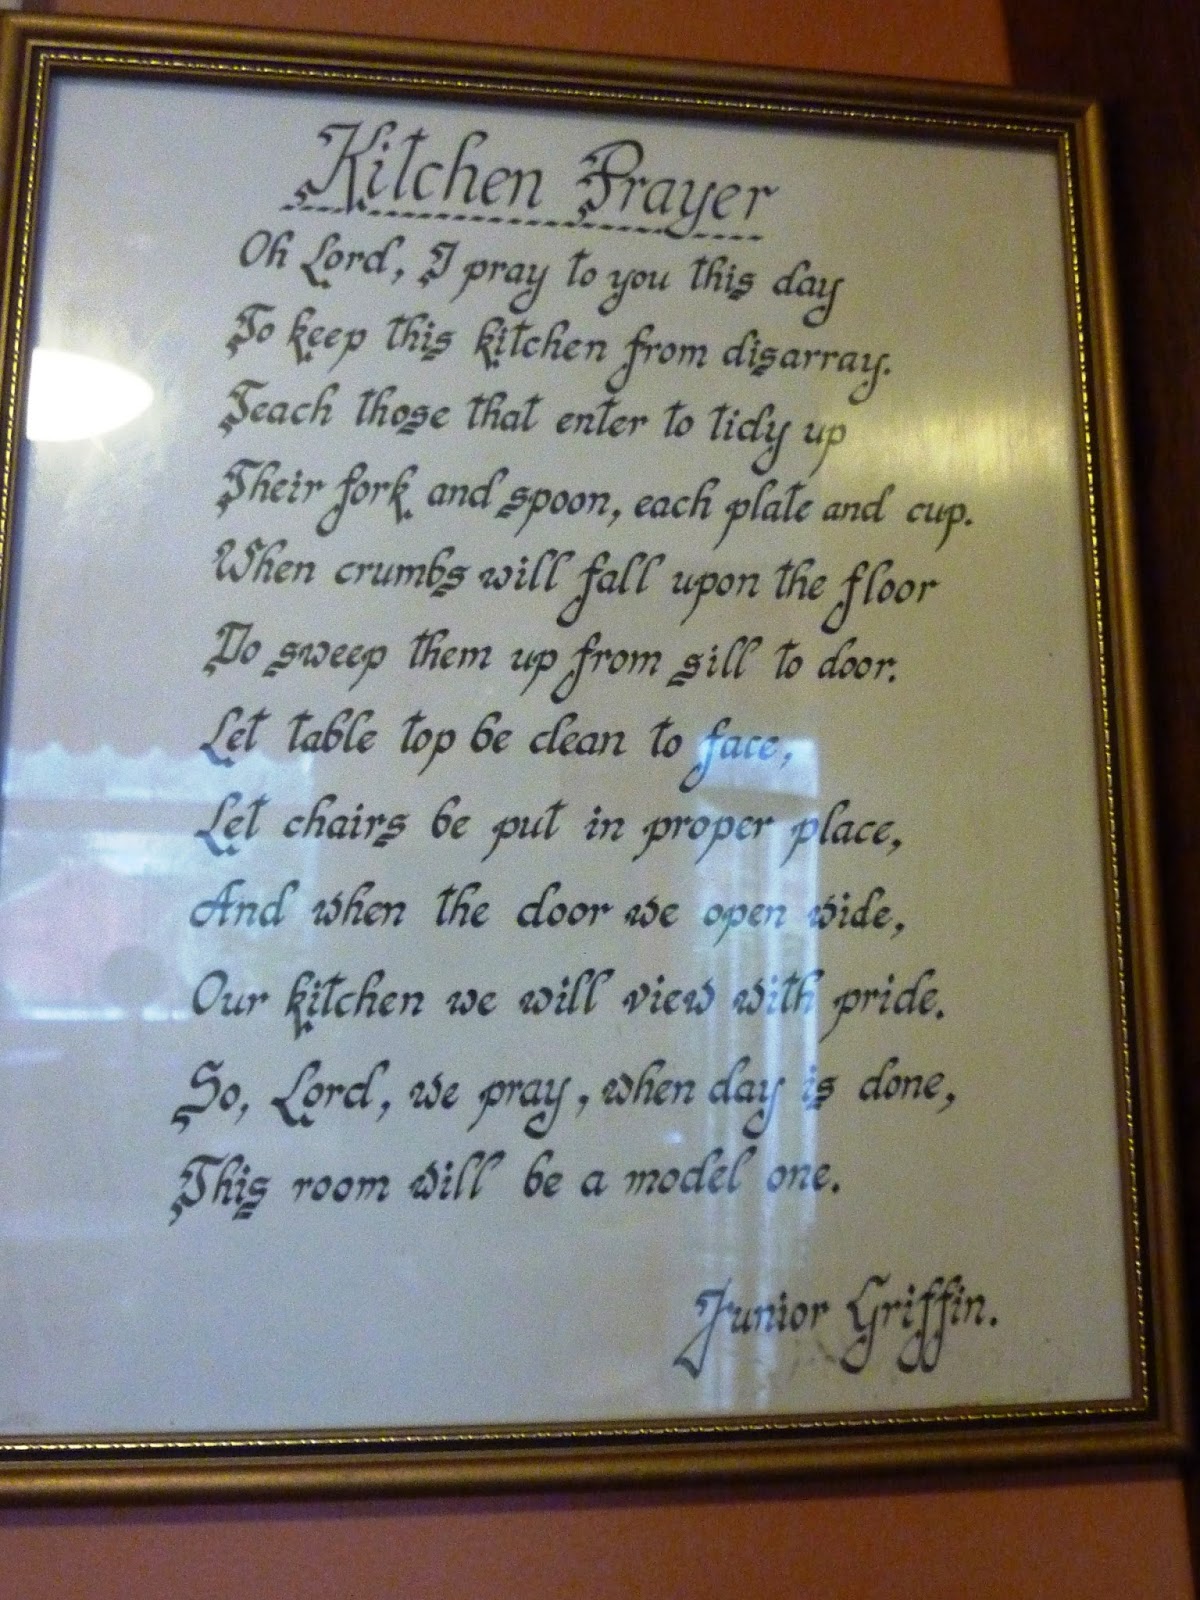 Kitchen Prayer
Oh Lord, I pray to you this day
To keep this kitchen from disarray.
Teach those that enter to tidy up
Their fork and spoon, each plate and cup.
When crumbs will fall upon the floor
Do sweep them up from sill to door.
Let table top be clean to face,
Let chairs be put in proper place,
And when the door we open wide,
Our kitchen we will view with pride.
So, Lord, we pray, when day is done,
This room will be a model one.
Junior Griffin.